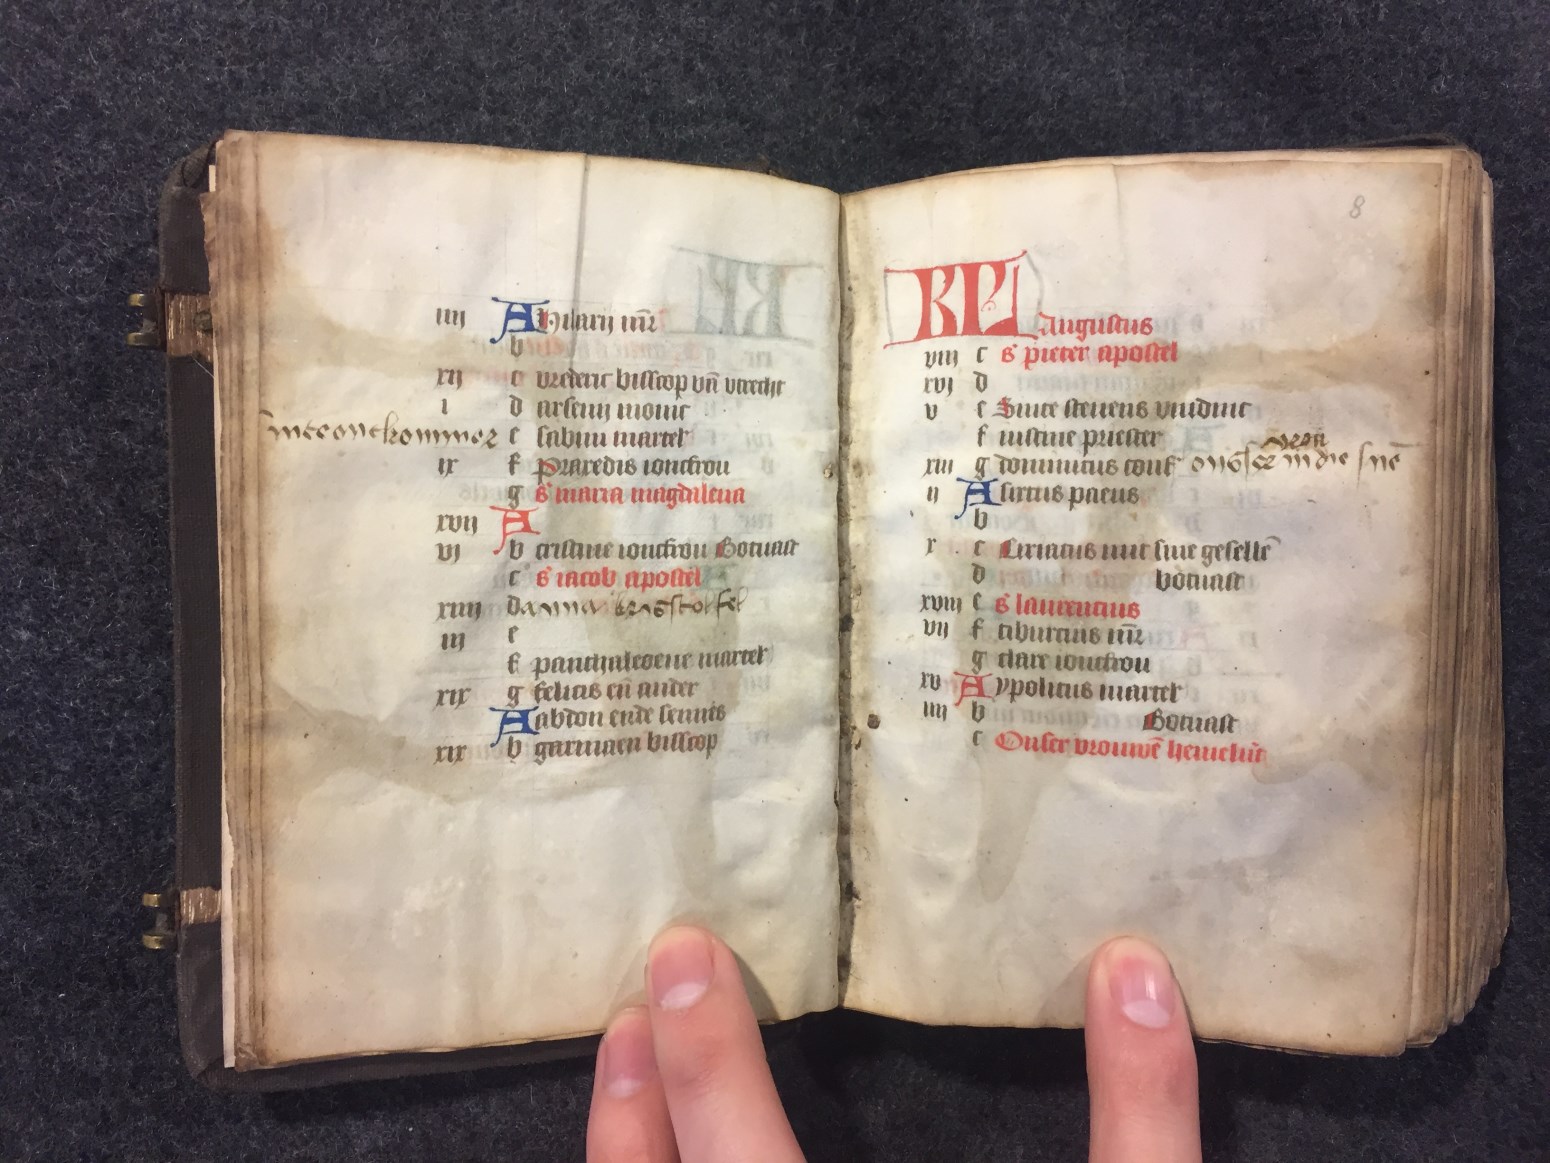 iiij A Hilarij mr̄
b
xij c vrederic bisscop vā vtrecht
i d arsenij monic
ontkommer e sabini martel
ix f Praxedis ionckfrou
g s maria magdalena
xvij A
vj b cristine ionckfrou Botuast
c s iacob apostel
xiiij d anna kerstoffel
iij e
f panthaleoene martel
xix g felicis eñ ander
A abdon ende sennis
xix b garmaen bisscop
8
KL Augustus
viij c s pieter apostel
xvj d
v e Sinte steuens vindinc
f iustine priester
xiij g dominicus conf onser vrou in die sne
ij A sixtus paeus
b
x c Ciriacus mit sine geselle
d botuast
xviij e s laurencius
vij f tiburcius mr̄
g clare ionckfrou
xv A ypolitus martel
iiij b Botuast
c Onser vrouwē hemeluart